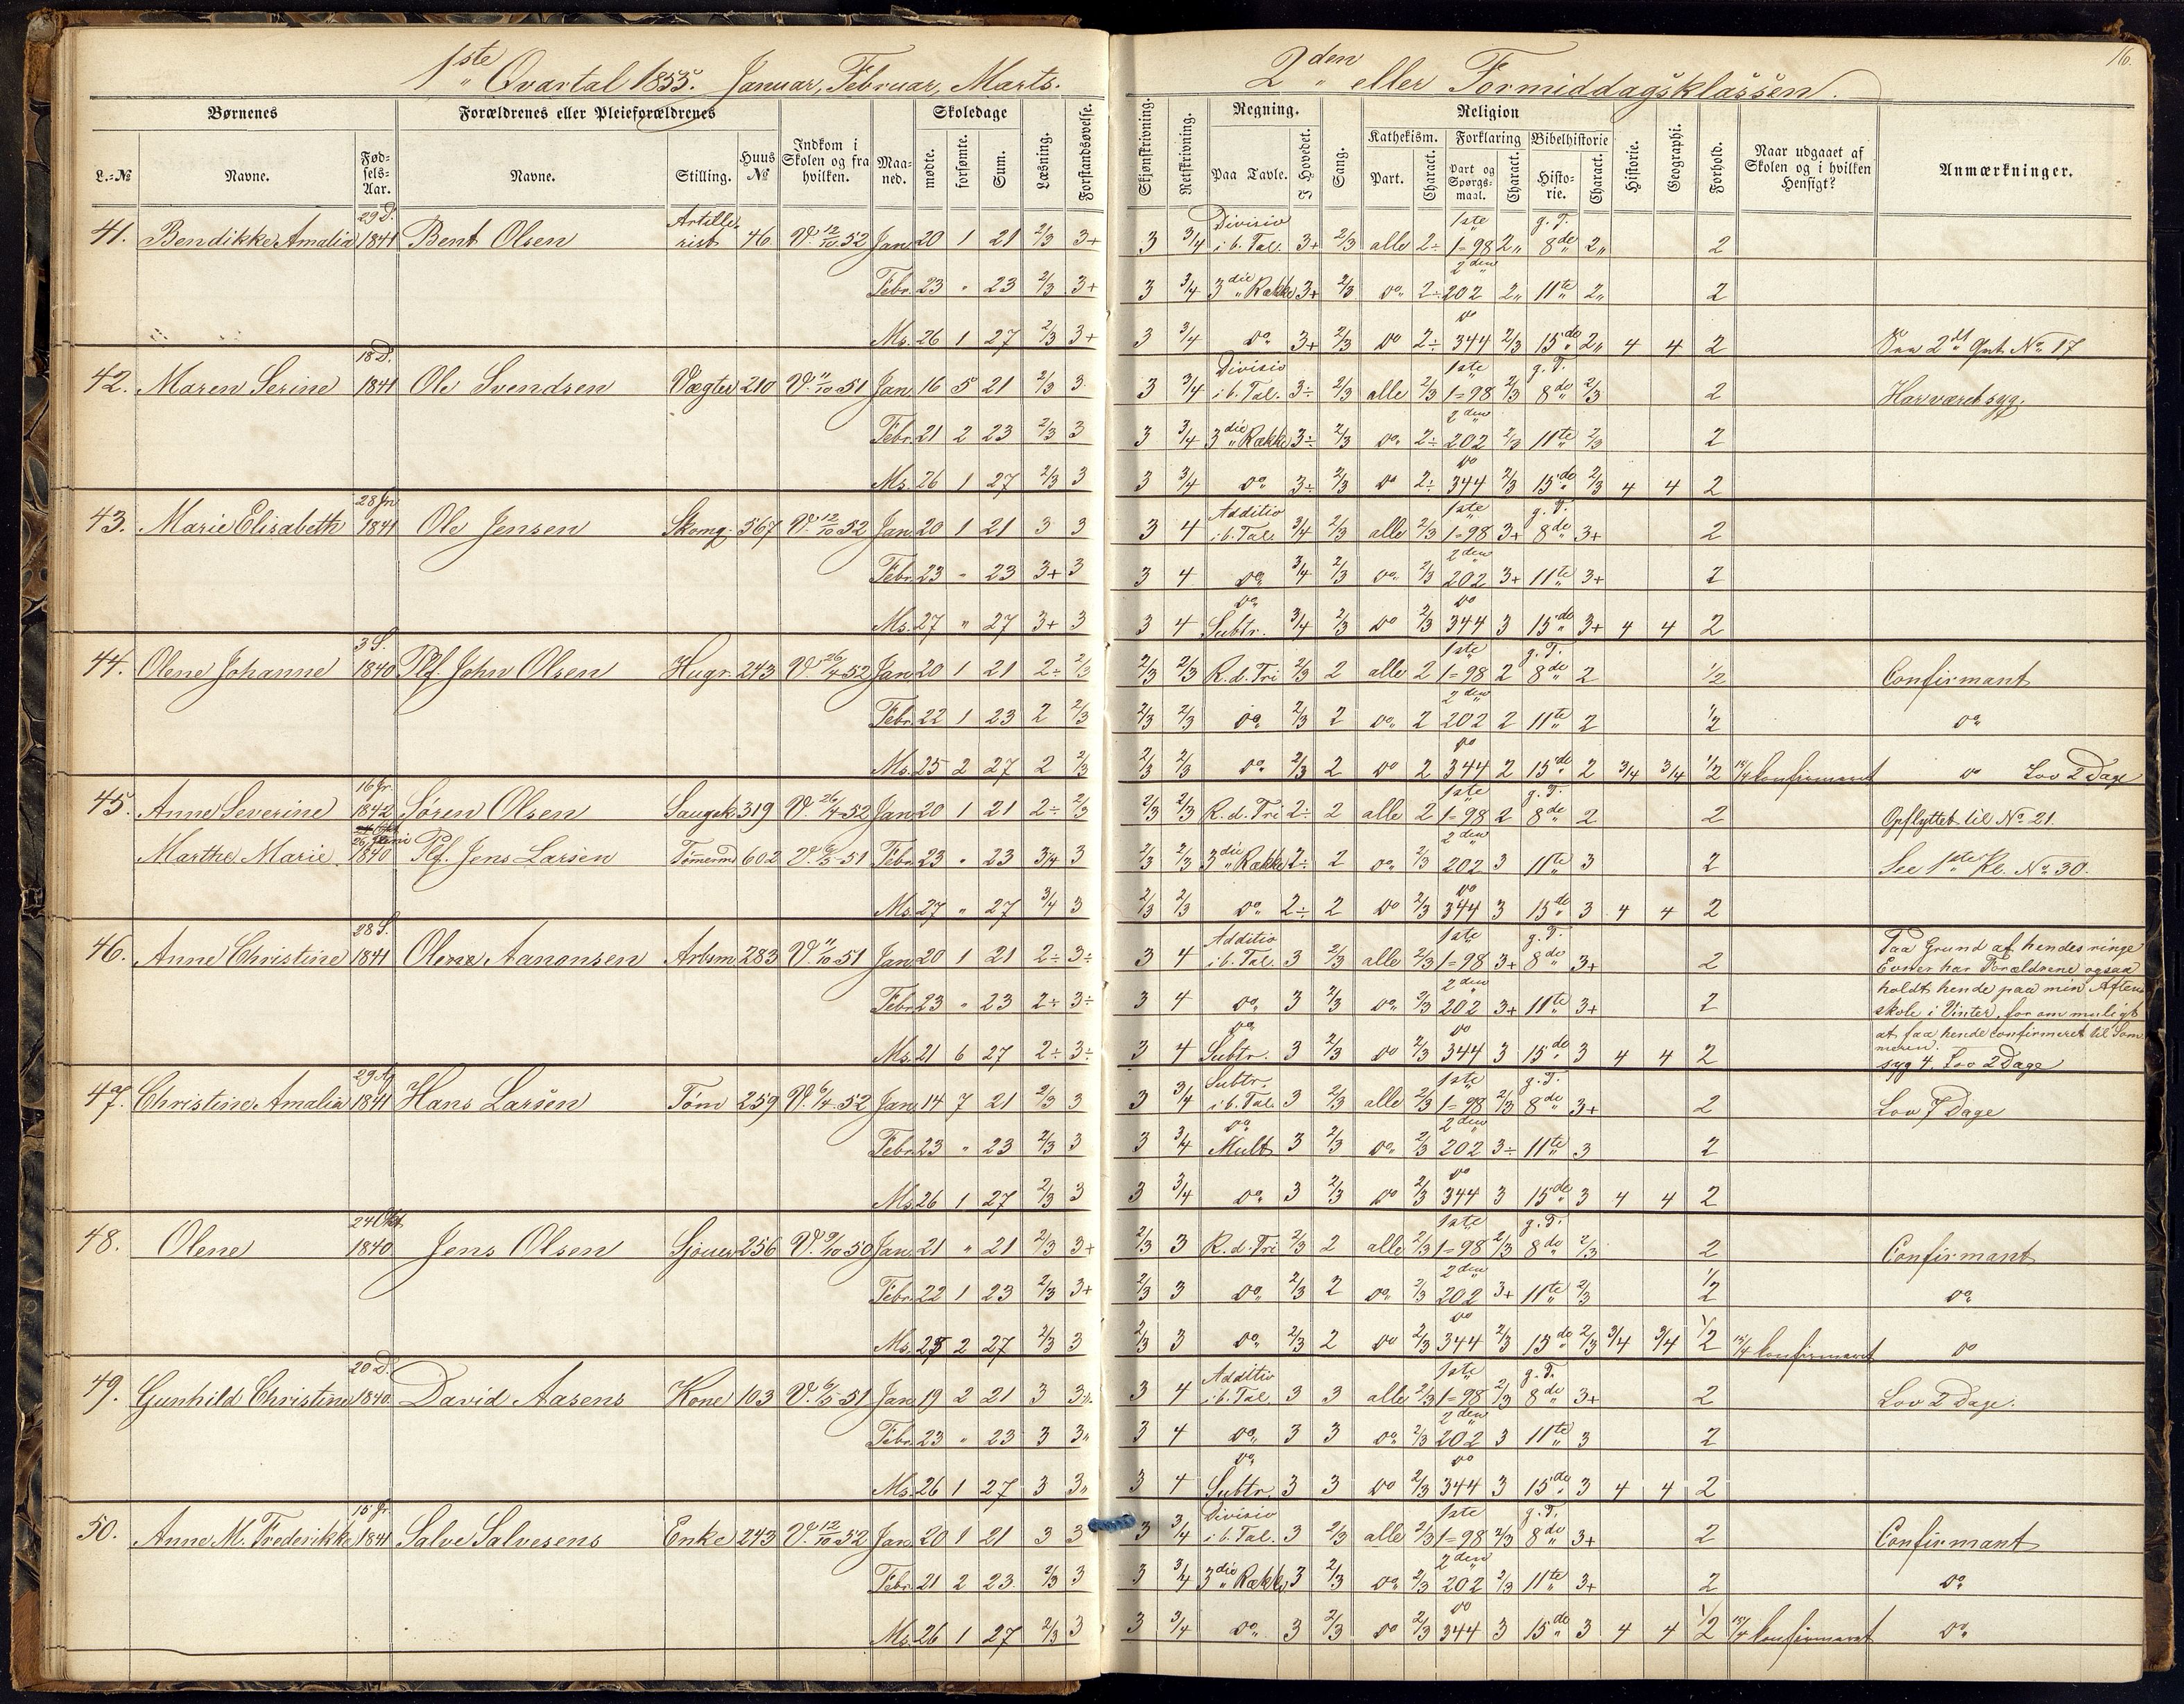 1ste Qvartal 1855. Januar, Februar, Marts.
2den eller Formiddagsklassen.
16.
Børnenes | Forældrenes eller Pleieforældrenes | Indkom i Skolen og fra hvilken. | Maaned. | Skoledage | Læsning. | Forstandsøvelse. | Skjønskrivning. | Retskrivning. | Regning. | Sang. | Religion | Historie. | Geographi. | Forhold. | Naar udgaaet af Skolen og i hvilken Hensigt? | Anmærkninger.
L.-No | Navne. | Fødsels-Aar. | Navne. | Stilling. | Huus No | mødte. | forsømte. | Sum. | Paa Tavle. | I Hovedet. | Kathekism. | Forklaring | Bibelhistorie
Part. | Charact. | Part og Spørgsmaal. | Charact. | Historie. | Charact.
41. Bendikke Amalia 29 D. 1841 Bent Olsen Artillerist 46 V. 12/10 52 Jan. 20 1 21 2/3 3+ 3 3/4 Divisio i b. Tal. 3+ 2/3 alle 2÷ 1ste 1=98 2" g. T. 8de 2" 2
Febr. 23 " 23 2/3 3+ 3 3/4 3die Række 3+ 2/3 do 2÷ 2den 202 2" 11te 2" 2
Ms. 26 1 27 2/3 3+ 3 3/4 do 3+ 2/3 do 2÷ do 344 2/3 15de 2" 4 4 2 No 17
42. Maren Serine 18 D. 1841 Ole Svendsen Vægter 210 V. 11/10 51 Jan. 16 5 21 2/3 3 3 3/4 Divisio i b. Tal. 3÷ 2/3 alle 2/3 1ste 1=98 2/3 g. T. 8de 2/3 2 Har været syg.
Febr. 21 2 23 2/3 3 3 3/4 3die Række 3÷ 2/3 do 2÷ 2den 202 2/3 11te 2/3 2
Ms. 26 1 27 2/3 3 3 3/4 do 3÷ 2/3 do 2÷ do 344 2/3 15de 2/3 4 4 2
43. Marie Elisabeth 28 Jn 1841 Ole Jensen Skomg. 567 V. 12/10 52 Jan. 20 1 21 3 3 3 4 Additio i b. Tal. 3/4 2/3 alle 2/3 1ste 1=98 3+ g. T. 8de 3+ 2
Febr. 23 " 23 3+ 3 3 4 do 3/4 2/3 do 2/3 2den 202 3+ 11te 3+ 2
Ms. 27 " 27 3+ 3 3 4 do Subtr. 3/4 2/3 do 2/3 do 344 3 15de 3+ 4 4 2
44. Olene Johanne 3 S. 1840 Plf. John Olsen Hugr. 243 V. 26/4 52 Jan. 20 1 21 2÷ 2/3 2/3 2/3 R. d. Tri 2/3 2 alle 2 1ste 1=98 2 g. T. 8de 2 1/2 Confirmant
Febr. 22 1 23 2 2/3 2/3 2/3 do 2/3 2 do 2 2den 202 2 11te 2 1/2 do
Ms. 25 2 27 2 2/3 2/3 2/3 do 2/3 2 do 2 do 344 2 15de 2 3/4 3/4 1/2 15/4 konfirmeret do Lov 2 Dage
45. Anne Severine 16 Jr. 1842 Søren Olsen Saugek 319 V. 26/4 52 Jan. 20 1 21 2÷ 2/3 2/3 2/3 R. d. Tri 2÷ 2 alle 2 1ste 1=98 2 g. T. 8de 2 2 Opflyttet til No 21
Marthe Marie 26 Juni 1840 Plf. Jens Larsen Tømermd 602 V. 6/5 51 Febr. 23 " 23 3/4 3 2/3 2/3 3die Række 2÷ 2 do 2/3 2den 202 3 11te 3 2 See 1ste Kl. No 30.
Ms. 27 " 27 3/4 3 2/3 2/3 do 2÷ 2 do 2/3 do 344 3 15de 3 4 4 2
46. Anne Christine 28 S. 1841 Aanonsen Arbsm 283 V. 11/10 51 Jan. 20 1 21 2÷ 3÷ 3 4 Additio i b. Tal. 3 2/3 alle 2/3 1ste 1=98 3+ g. T. 8de 3+ 2 Paa Grund af hendes ringe
Evner har Forældrene ogsaa
Febr. 23 " 23 2÷ 3÷ 3 4 do 3 2/3 do 2/3 2den 202 3+ 11te 3+ 2 holdt hende paa min Aften-
skole i Vinter, for om muligt
Ms. 21 6 27 2÷ 3÷ 3 4 do Subtr. 3 2/3 do 2/3 do 344 3 15de 3 4 4 2 at faa hende confirmeret til Som-
meren.
syg 4. Lov 2 Dage
47. Christine Amalia 29 A. 1841 Hans Larsen Tøm 259 V. 6/4 52 Jan. 14 7 21 2/3 3 3 3/4 Subtr. i b. Tal. 3 2/3 alle 2/3 1ste 1=98 2/3 g. T. 8de 3+ 2 Lov 7 Dage
Febr. 23 " 23 2/3 3 3 3/4 do Mult 3 2/3 do 2/3 2den 202 3÷ 11te 3 2
Ms. 26 1 27 2/3 3 3 3/4 do 3 2/3 do 2/3 do 344 3 15de 3 4 4 2
48. Olene 24 Okt 1840 Jens Olsen Sjouer 256 V. 9/10 50 Jan. 21 " 21 2/3 3+ 2/3 3 R. d. Tri 2/3 2 alle 2/3 1ste 1=98 2/3 g. T. 8de 2/3 2 Confirmant
Febr. 22 1 23 2/3 3+ 2/3 3 do 2/3 2 do 2/3 2den 202 3+ 11te 2/3 1/2 do
Ms. 25 2 27 2/3 3 2/3 3 do 2/3 2 do 2/3 do 344 2/3 15de 2/3 3/4 3/4 1/2 15/4 konfirmeret do
49. Gunhild Christine 20 D. 1840 David Aasens Kone 103 V. 6/5 51 Jan. 19 2 21 3 3" 3 4 Additio i b. Tal. 3 3 alle 2/3 1ste 1=98 2/3 g. T. 8de 3+ 2 Lov 2 Dage.
Febr. 23 " 23 3 3" 3 4 do 3 3 do 2/3 2den 202 3 11te 3 2
Ms. 26 1 27 3 3" 3 4 do Subtr. 3 3 do 2/3 do 344 3 15de 3 4 4 2
50. Anne M. Frederikke 15 Jr. 1841 Salve Salvesens Enke 243 V. 12/10 52 Jan. 20 1 21 3 3 3 3/4 Divisio i b. Tal. 3 2/3 alle 2/3 1ste 1=98 2/3 g. T. 8de 3+ 2 Confirmant
Febr. 21 2 23 2/3 3 3 3/4 3die Række 3 2/3 do 2/3 2den 202 2/3 11te 3+ 2 do
Ms. 26 1 27 2/3 3 3 3/4 do 3 2/3 do 2/3 do 344 3 15de 3 4 4 1/2 15/4 konfirmeret do